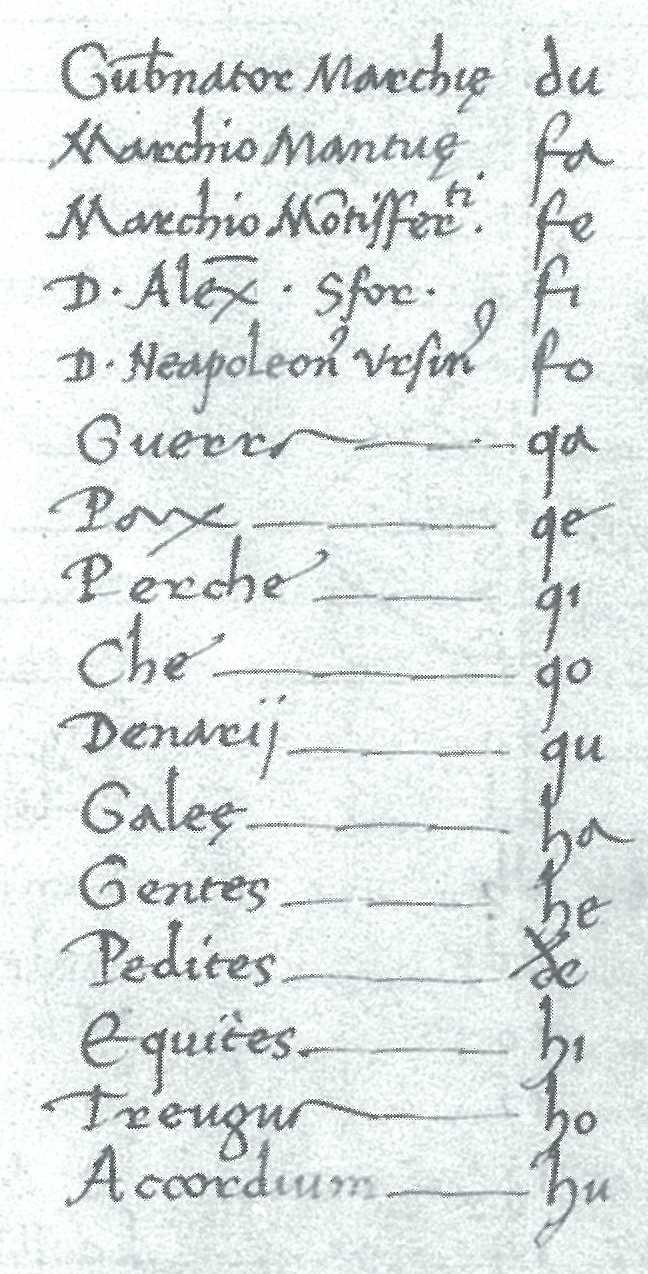 Gub̄nator Marchię du
Marchio Mantuę fa
Marchio Mōtisferᵗⁱ. fe
D. Alex̄. Sfor. fi
D. Neapoleonꝰ Ursinꝰ fo
Guerra qa
Pax qe
Perche qi
Che qo
Denarij qu
Galeę ha
Gentes he
Pedites
Equites. hi
Treugua ho
Accordium hu